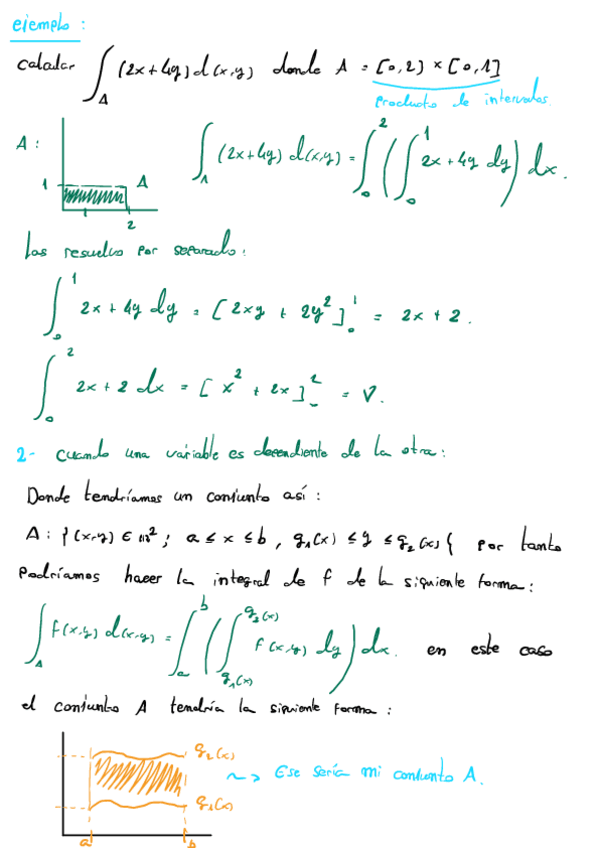 ejemplo:
calcular ∫_A (2x+4y) d(x,y) donde A = [0,2] × [0,1]
producto de intervalos
A: ∫_A (2x+4y) d(x,y) = ∫_0^2 (∫_0^1 2x+4y dy) dx.
1 A
1 2
Las resuelvo por separado:
∫_0^1 2x+4y dy = [2xy + 2y²]_0^1 = 2x + 2.
∫_0^2 2x+2 dx = [x² + 2x]^2 = V.
2- cuando una variable es dependiente de la otra:
Donde tendríamos un conjunto así:
A: {(x,y) ∈ ℝ²; a ≤ x ≤ b, g₁(x) ≤ y ≤ g₂(x)} por tanto
podríamos hacer la integral de f de la siguiente forma:
∫_A f(x,y) d(x,y) = ∫_a^b (∫_{g₁(x)}^{g₂(x)} f(x,y) dy) dx. en este caso
el conjunto A tendría la siguiente forma:
g₂(x)
~> Ese sería mi conjunto A.
g₁(x)
a b